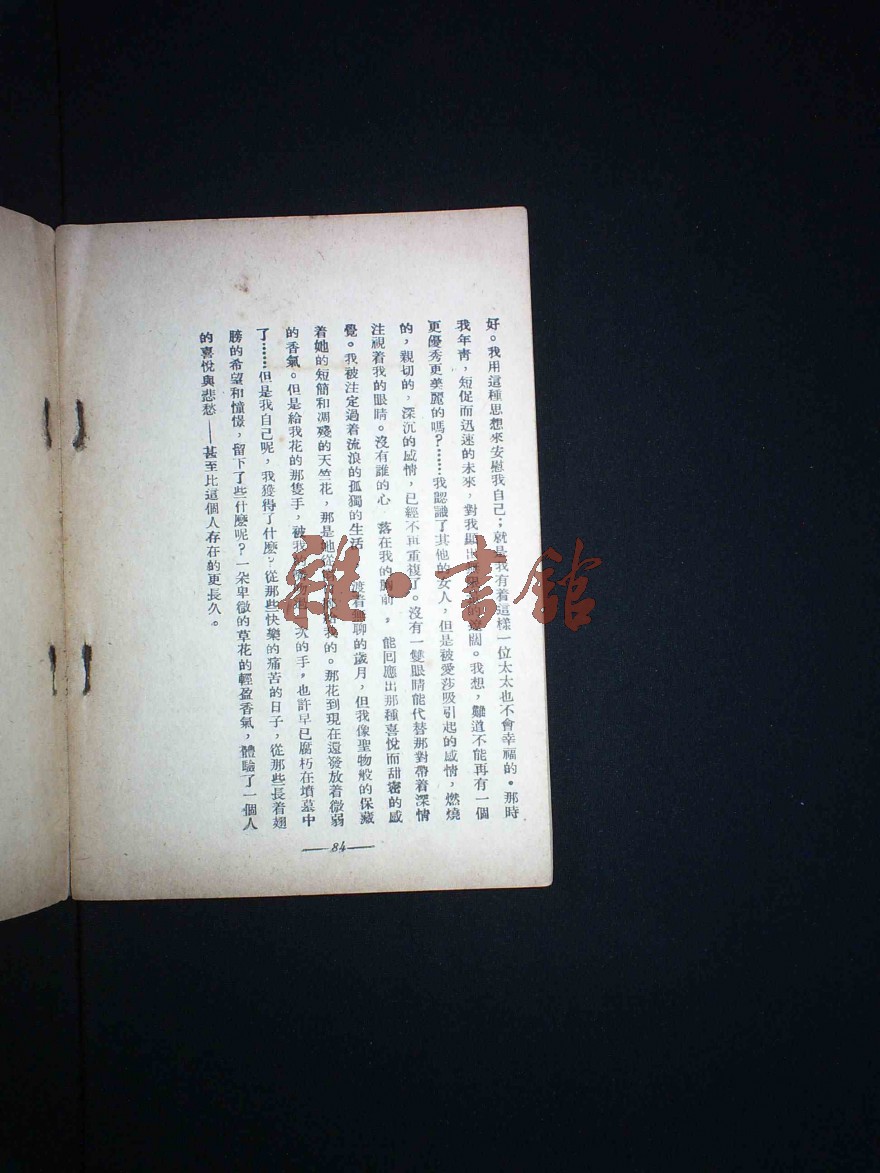 好。我用這種思想來安慰我自己；就是我有着這樣一位太太也不會幸福的。那時
我年靑，短促而迅速的未來，對我顯 的遼闊。我想，難道不能再有一個
更優秀更美麗的嗎？……我認識了其他的女人，但是被愛莎吸引起的感情，燃燒
的，親切的，深沉的感情，已經不再重複了。沒有一雙眼睛能代替那對帶着深情
注視着我的眼睛。沒有誰的心 落在我的胸前，能回應出那種喜悅而甜密的感
覺。我被注定過着流浪的孤獨的生活 渡着無聊的歲月，但我像聖物般的保藏
着她的短簡和凋殘的天竺花，那是她從 給我的。那花到現在還發放着微弱
的香氣。但是給我花的那隻手，被我 次的手，也許早已腐朽在墳墓中
了……但是我自己呢，我獲得了什麽？從那些快樂的痛苦的日子，從那些長着翅
膀的希望和憧憬，留下了些什麽呢？一朵卑微的草花的輕盈香氣，體驗了一個人
的喜悅與悲愁——甚至比這個人存在的更長久。
—84—
雜·書館